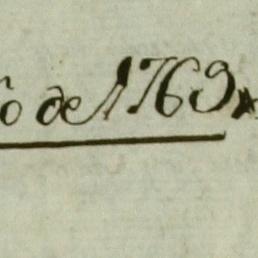 ño de 1769